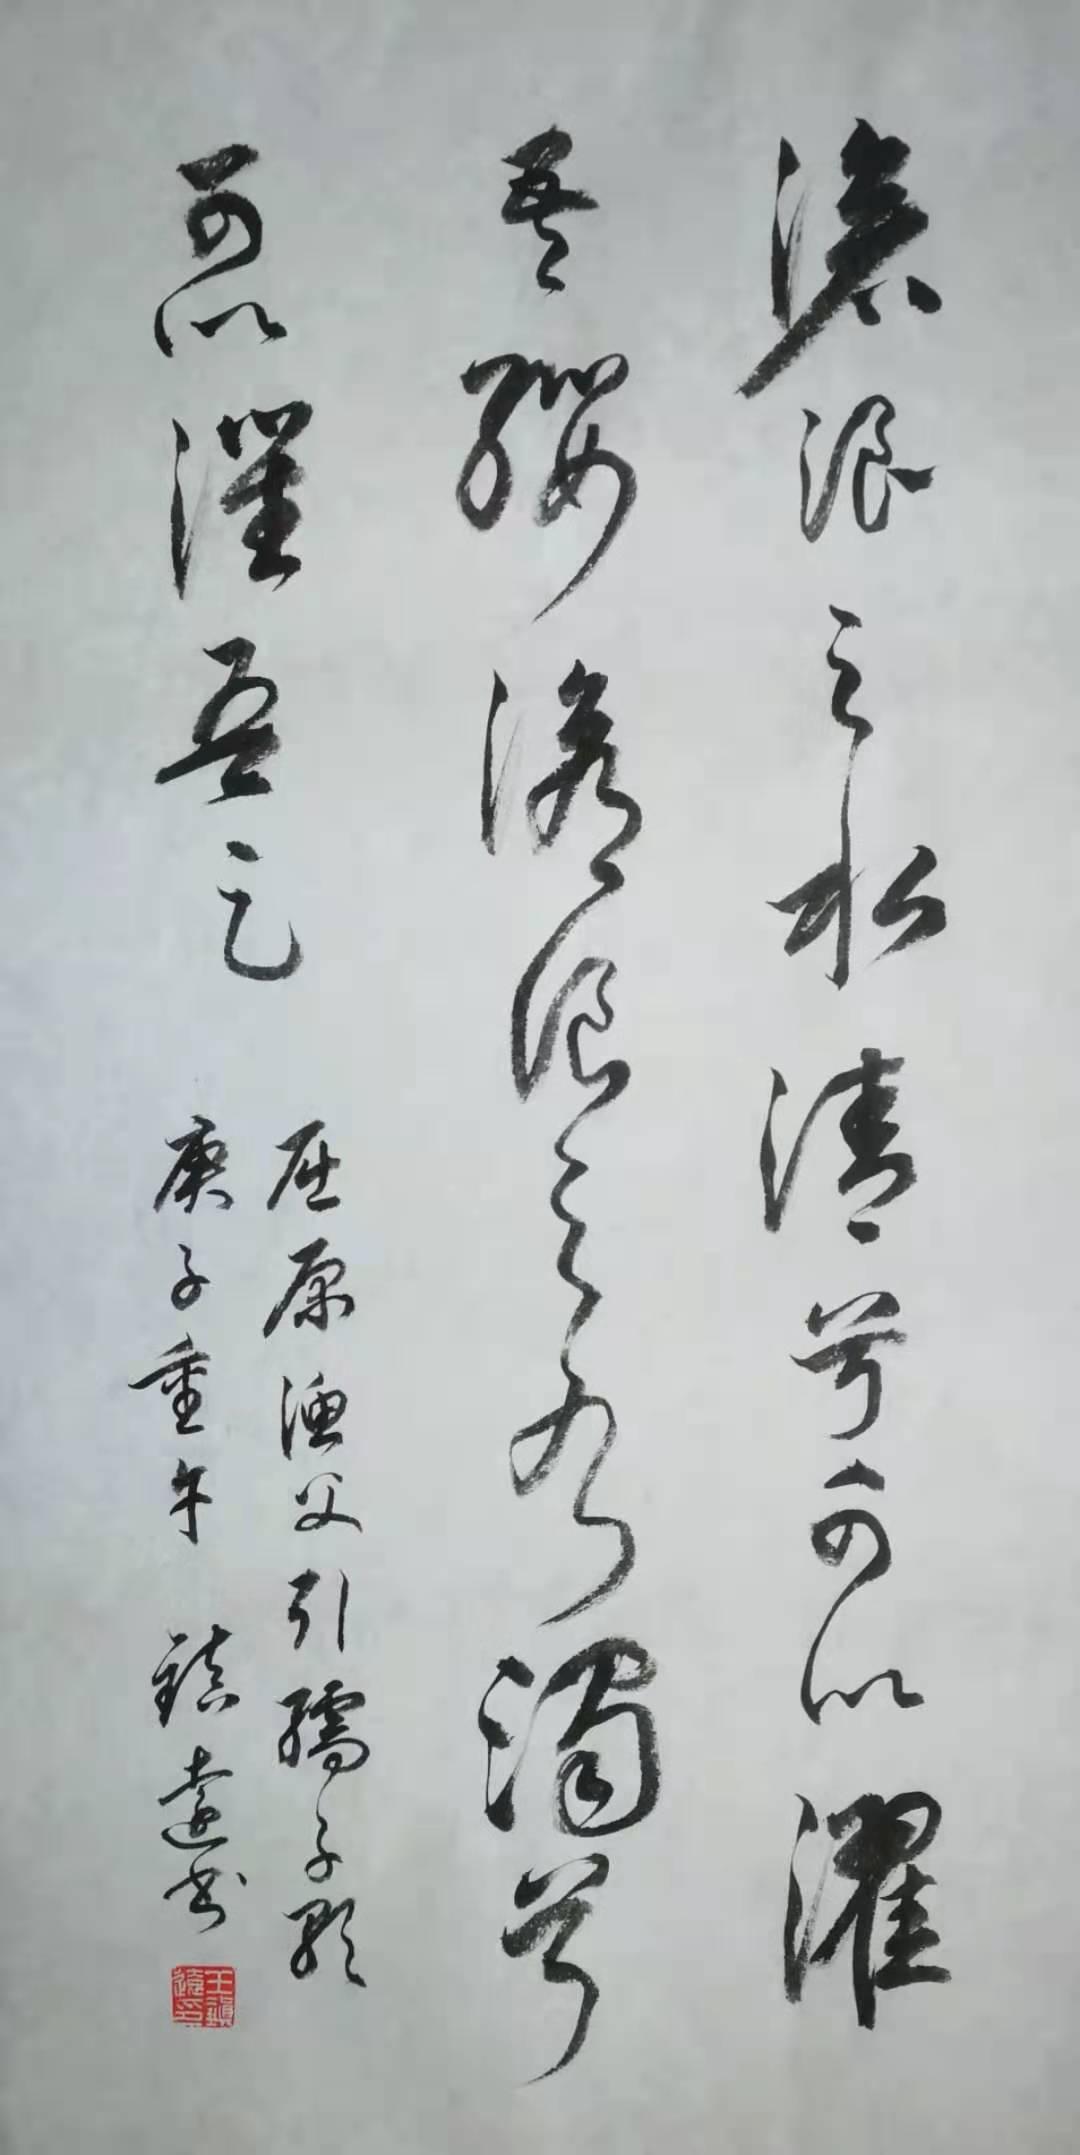 滄浪之水清兮可以濯
吾纓滄浪之水濁兮
可以濯吾足
屈原漁父引孺子歌
庚子重午 鎮遠书
王鎮遠印